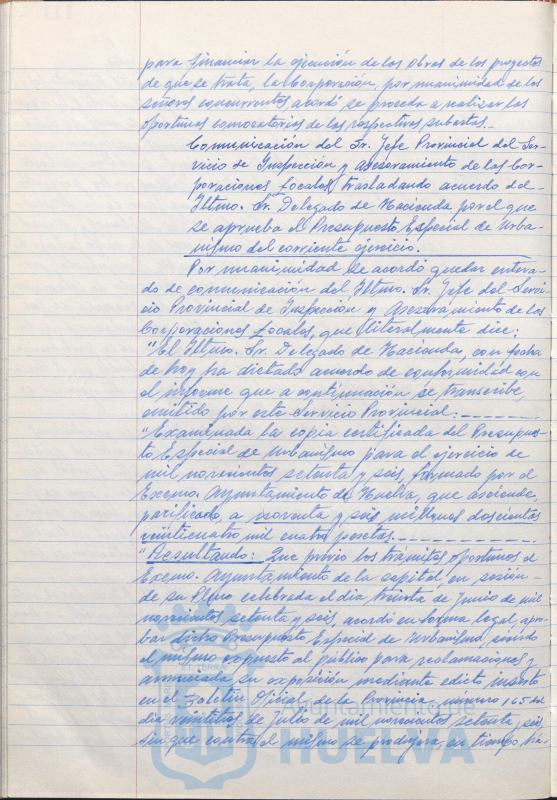 para financiar la ejecución de las obras de los proyectos
de que se trata, la Corporación, por unanimidad de los
señores concurrentes acordó se proceda a realizar las
oportunas convocatorias de las respectivas subastas.-
Comunicación del Sr. Jefe Provincial del Ser-
vicio de Inspección y Asesoramiento de las Cor-
poraciones Locales, trasladando acuerdo del
Iltmo. Sr. Delegado de Hacienda por el que
se aprueba el Presupuesto Especial de Urba-
nismo del corriente ejercicio.
Por unanimidad se acordó quedar entera-
do de comunicación del Iltmo. Sr. Jefe del Servi-
cio Provincial de Inspección y Asesoramiento de las
Corporaciones Locales, que literalmente dice:
"El Iltmo. Sr. Delegado de Hacienda, con fecha
de hoy ha dictado acuerdo de conformidad con
el informe que a continuación se transcribe,
emitido por este Servicio Provincial:
"Examinada la copia certificada del Presupues-
to Especial de Urbanismo para el ejercicio de
mil novecientos setenta y seis, formado por el
Excmo. Ayuntamiento de Huelva, que asciende,
nivelado, a noventa y seis millones doscientas
veinticuatro mil cuatro pesetas.
"Resultando: Que previo los trámites oportunos el
Excmo. Ayuntamiento de la capital, en sesión
de su Pleno celebrada el día treinta de Junio de mil
novecientos setenta y seis, acordó en forma legal, apro-
bar dicho Presupuesto Especial de Urbanismo, siendo
el mismo expuesto al público para reclamaciones y
anunciada su exposición mediante edicto inserto
en el Boletín Oficial de la Provincia número 165 del
día veintitrés de Julio de mil novecientos setenta y seis,
sin que contra el mismo se produjera, en tiempo há-
Ayuntamiento de
HUELVA